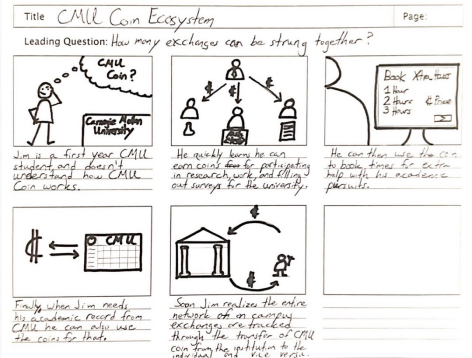 Title CMU Coin Ecosystem Page:
Leading Question: How many exchanges can be strung together?
CMU
Coin?
Carnegie Mellon
University
Book Xtra Hours
1 Hour
2 Hours
3 Hours
₵ Price
Jim is a first year CMU
student, and doesn't
understand how CMU
Coin works.
He quickly learns he can
earn coins for participating
in research, work, and filling
out surveys for the university.
He can then use the coin
to book times for extra
help with his academic
pursuits.
CMU
Finally, when Jim needs
his academic record from
CMU he can also use
the coins for that.
Soon Jim realizes the entire
network of on campus
exchanges are tracked
through the transfer of CMU
coin from the institution to the
individual and vice versa.